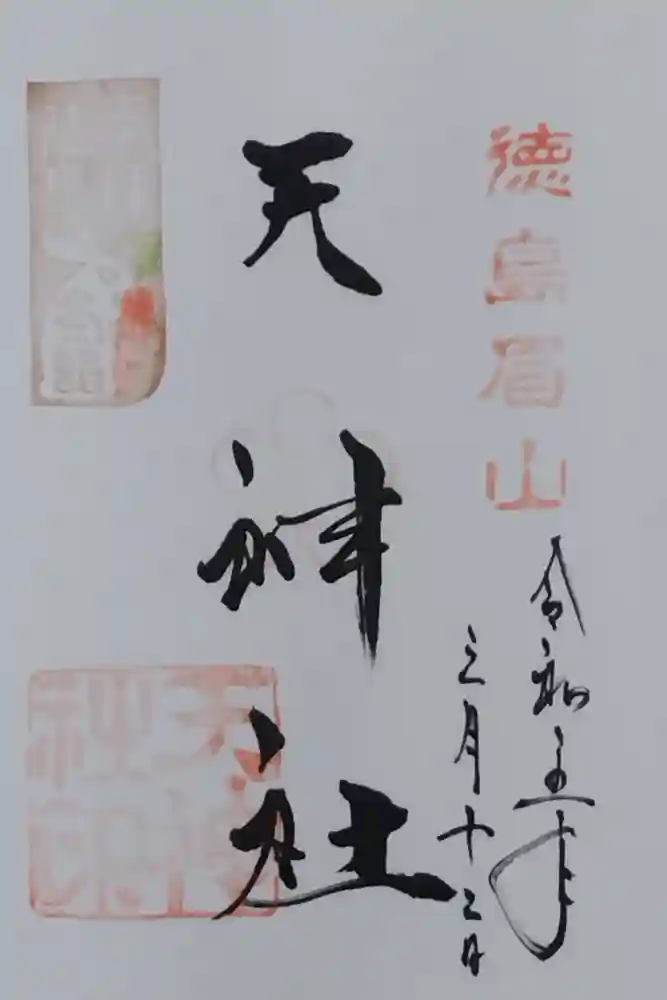 徳島眉山
令和五年
三月十三日
天神社
天神社印